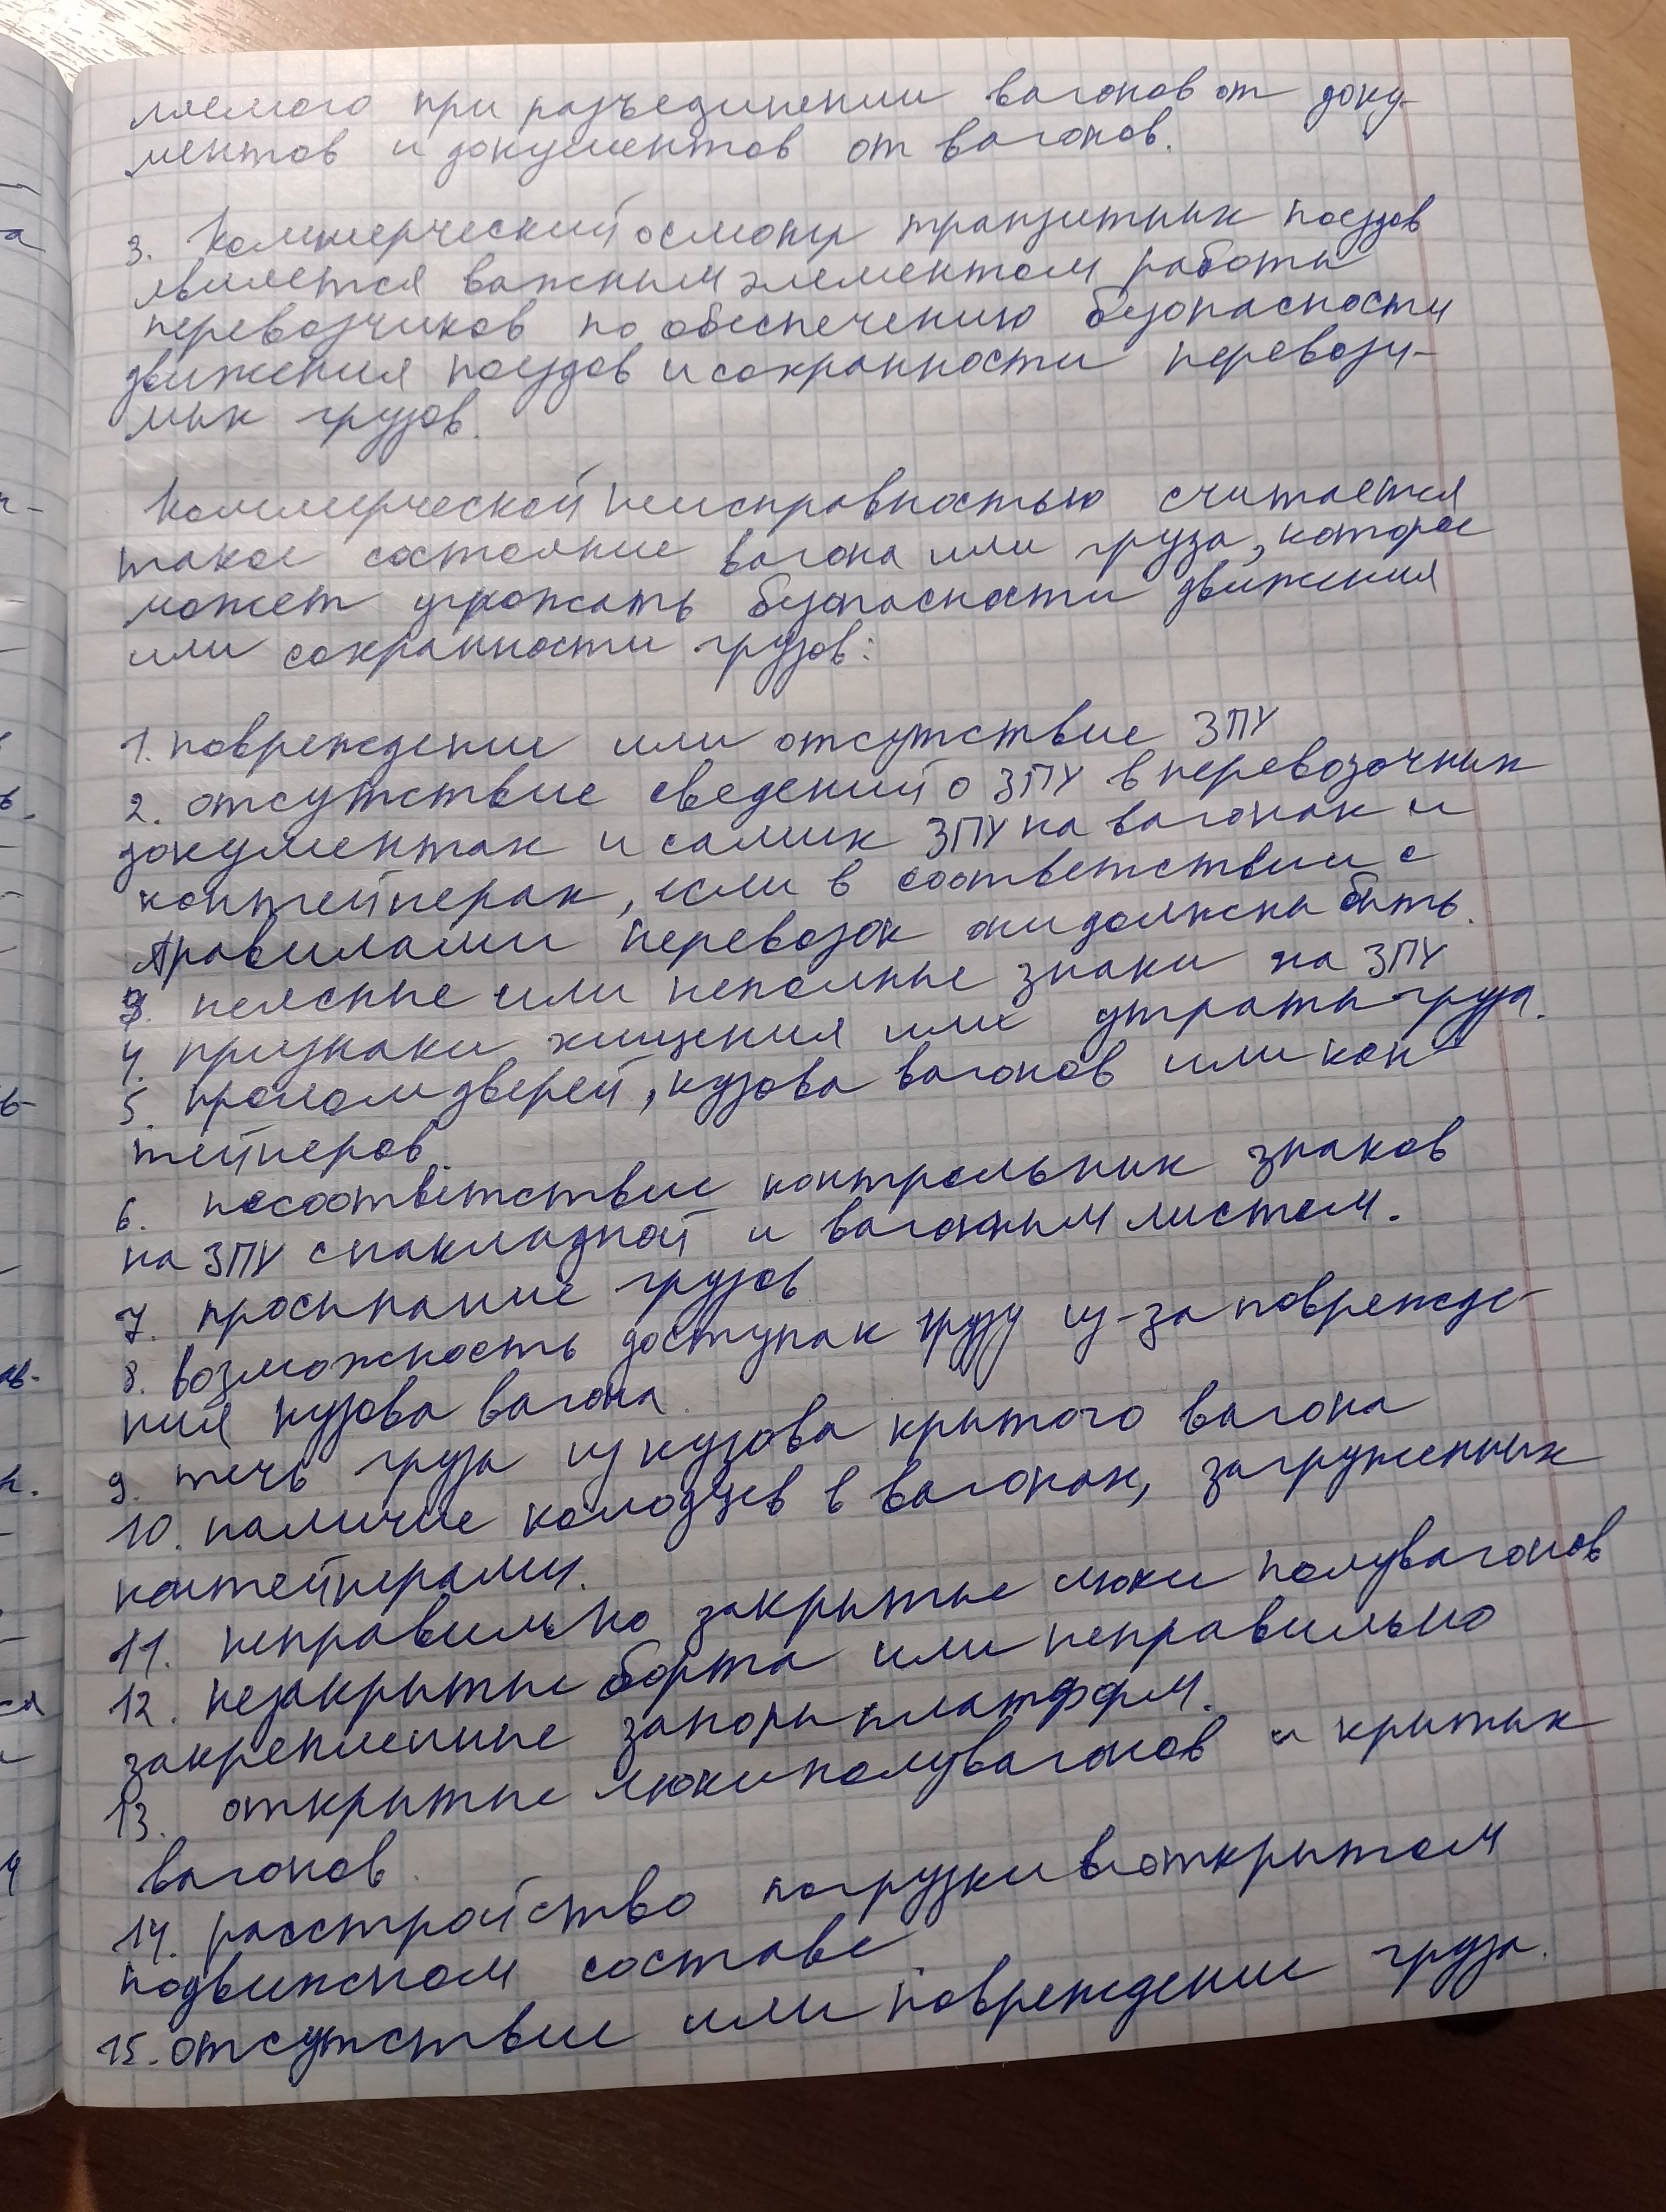 ляемого при разъединении вагонов от доку-
ментов и документов от вагонов.
3. Коммерческий осмотр транзитных поездов
является важным элементом работы
перевозчиков по обеспечению безопасности
движения поездов и сохранности перевози-
мых грузов.
Коммерческой неисправностью считается
такое состояние вагона или груза, которое
может угрожать безопасности движения
или сохранности грузов:
1. повреждение или отсутствие ЗПУ
2. отсутствие сведений о ЗПУ в перевозочных
документах и самих ЗПУ на вагонах и
контейнерах, если в соответствии с
правилами перевозок они должны быть.
3. неясные или неполные знаки на ЗПУ
4. признаки хищения или утраты груза.
5. пролом дверей, кузова вагонов или кон-
тейнеров.
6. несоответствие контрольных знаков
на ЗПУ с накладной и вагонным листом.
7. просыпание грузов
8. возможность доступа к грузу из-за поврежде-
ния кузова вагона.
9. течь груза из кузова крытого вагона
10. наличие колодцев в вагонах, загруженных
контейнерами.
11. неправильно закрытые люки полувагонов
12. незакрытые борта или неправильно
закрепленные запоры платформ.
13. открытые люки полувагонов и крытых
вагонов.
14. расстройство погрузки в открытом
подвижном составе
15. отсутствие или повреждение груза.